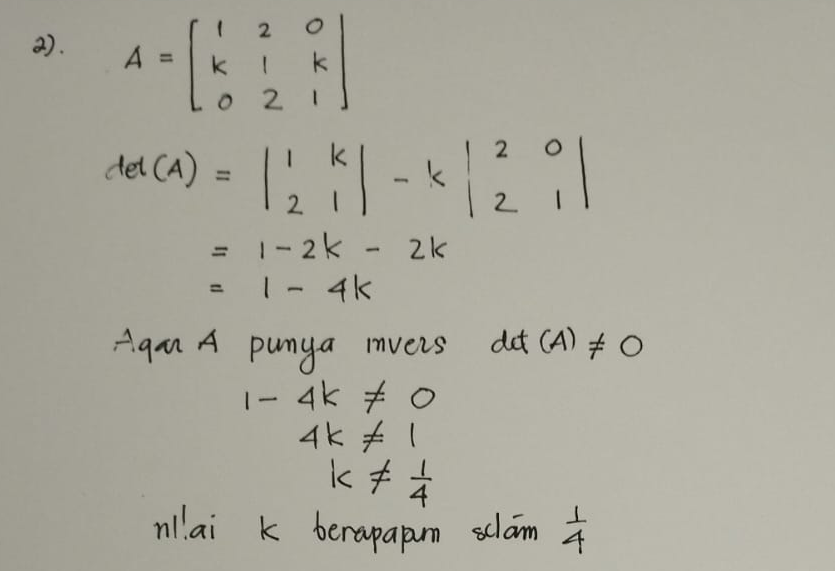 2). A = [ 1 2 0
k 1 k
0 2 1 ]
det(A) = | 1 k
2 1 | - k | 2 0
2 1 |
= 1 - 2k - 2k
= 1 - 4k
Agar A punya invers det (A) ≠ 0
1 - 4k ≠ 0
4k ≠ 1
k ≠ 1/4
nilai k berapapun selain 1/4